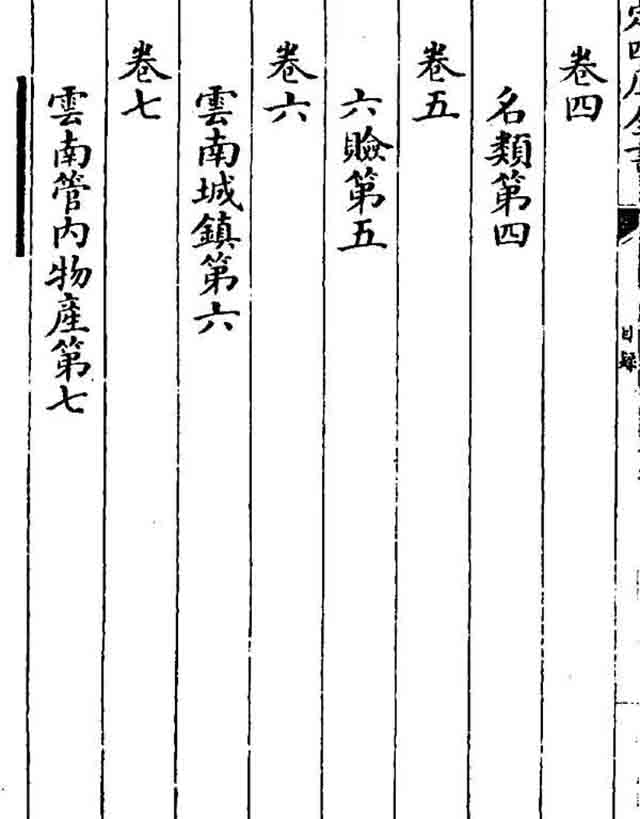 目録
卷四
名類第四
卷五
六賧第五
卷六
雲南城鎮第六
卷七
雲南管内物産第七